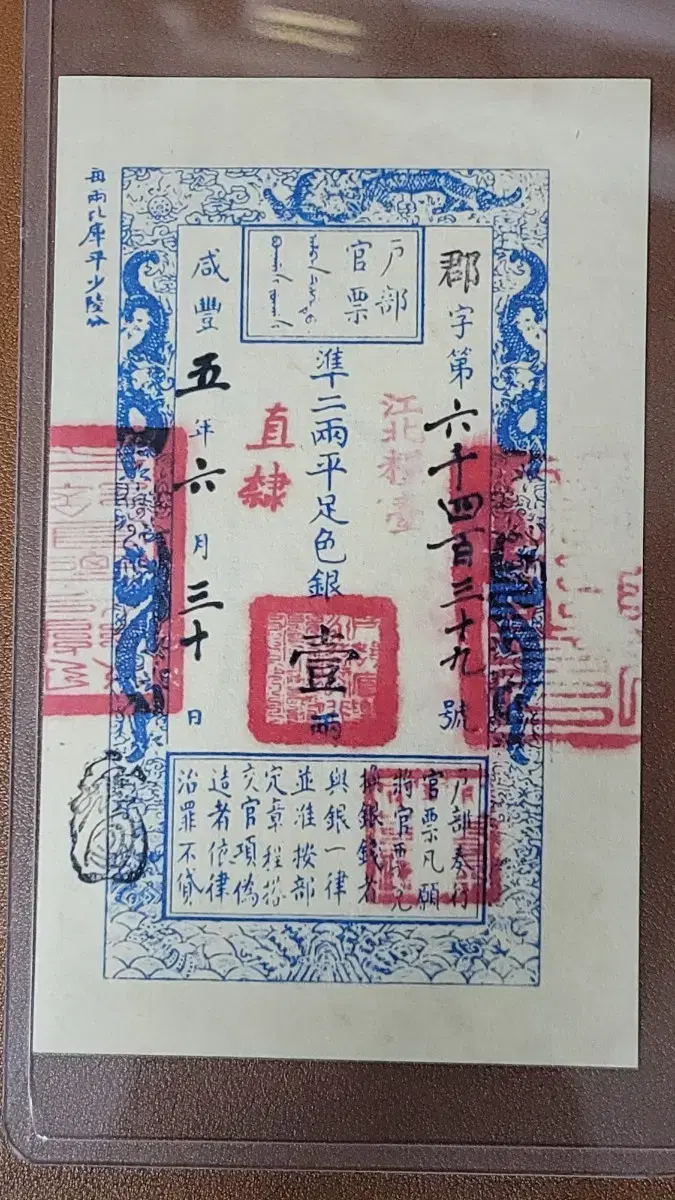 戶部
官票
郡字第六十四百三十九號
江北
準二兩平足色銀壹兩
直隸
咸豐五年六月三十日
每兩比庫平少陸分
戶部奏行
官票凡願
將官票兌
換銀錢者
與銀一律
並准按部
定章程搭
交官項偽
造者依律
治罪不貸